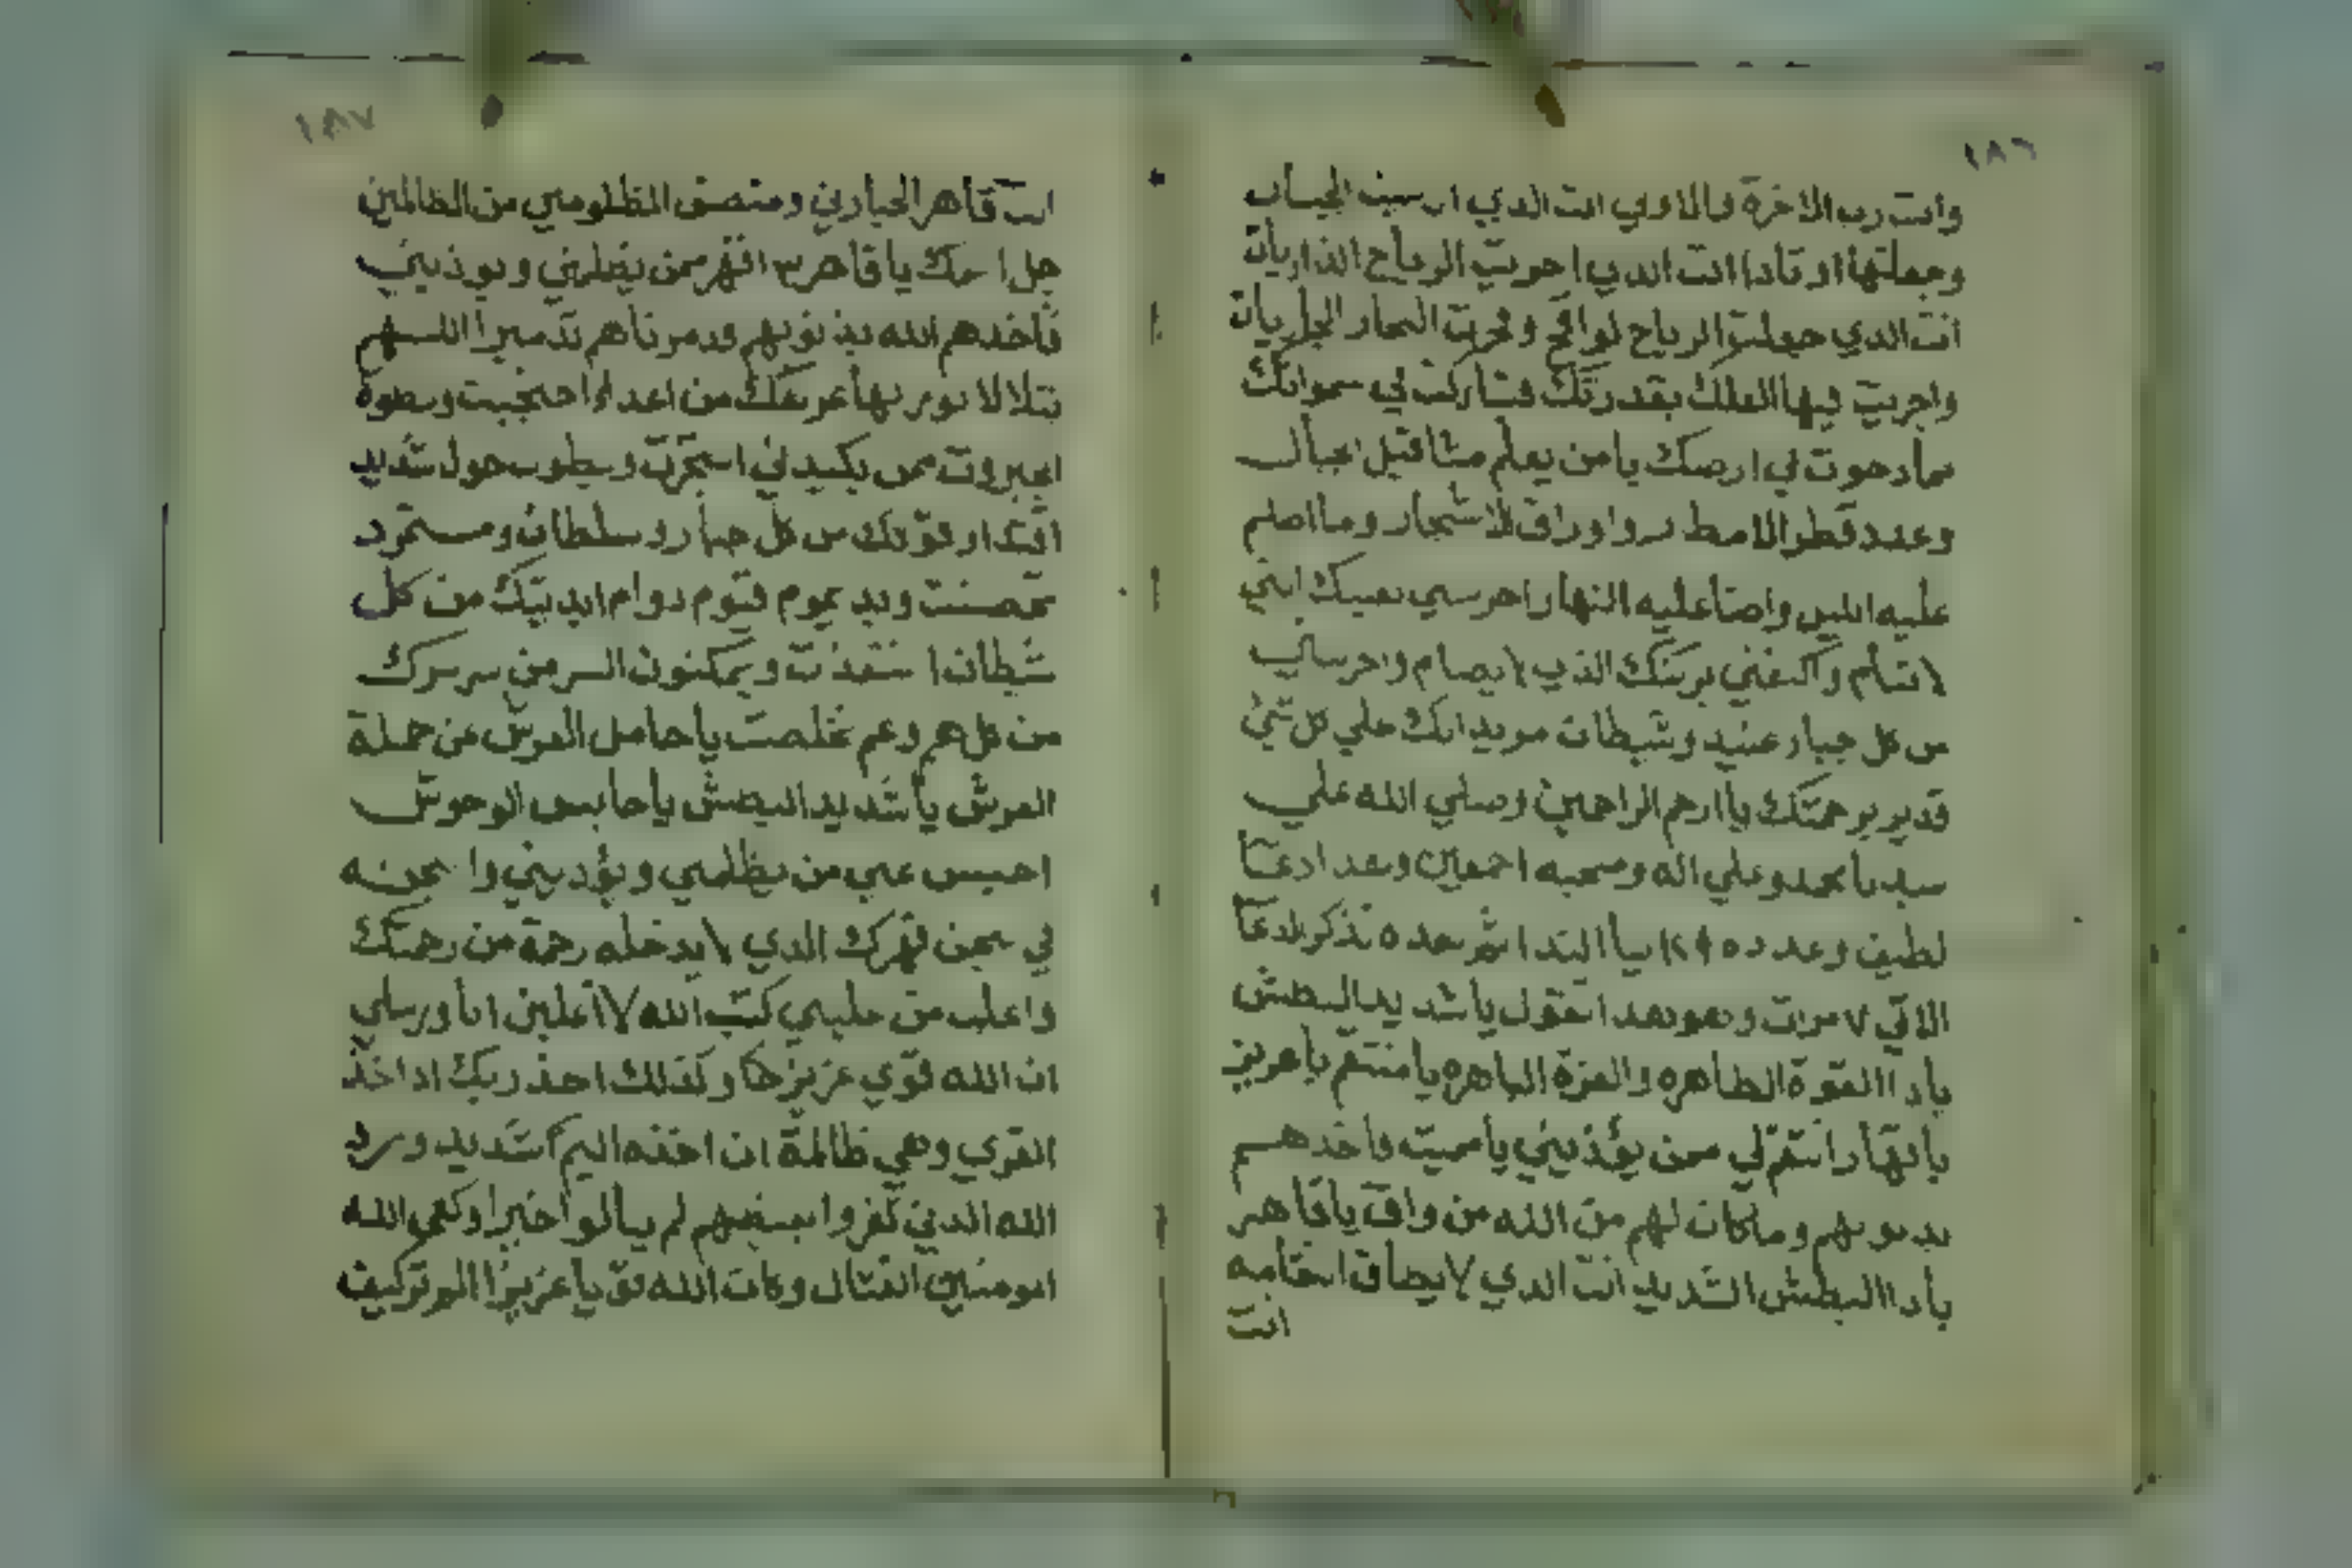 ١٨٦
وانت رب الاخرة والاولي انت الذي ارسيت الجبال
وجعلتها اوتادا انت الذي اجريت الرياح الذاريات
انت الذي جعلت الرياح لواقح وفجرت البحار الجاريات
واجريت فيها الفلك بقدرتك فتباركت في سمواتك
بما دحوت في ارضك يا من يعلم مثاقيل الجبال
وعدد قطر الامطار واوراق الاشجار وما اظلم
عليه الليل واضا عليه النهار احرسني بعينك التي
لا تنام واكنفني بركنك الذي لا يضام واحرسني
من كل جبار عنيد وشيطان مريد انك علي كل شي
قدير برحمتك يا ارحم الراحمين وصلي الله علي
سيدنا محمد وعلي اله وصحبه اجمعين وبعد ادعا
لطيف وعدده ١٢٩ بيا الندا ثم بعده تذكر الدعا
الاتي ٧ مرات وهو هذا تقول يا شديد البطش
يا ذا القوة الظاهره والعزة الباهره يا منتقم يا عزيز
يا قهار انتقم لي ممن يؤذيني يا مميت فاخذهم
بذنوبهم وما كان لهم من الله من واق يا قاهر
يا ذا البطش الشديد انت الذي لا يطاق انتقامه
انت
١٨٧
انت قاهر الجبارين ومنصف المظلومين من الظالمين
جل اسمك يا قاهر ٣ اقهر ممن يظلمني ويوذيني
فاخذهم الله بذنوبهم ودمرناهم تدميرا اللهم
بتلالا نور بها عرشك من اعداء احتجبت وبسطوة
الجبروت ممن يكيدني استجرت وبطوب حول شديد
اقتدار قوتك من كل جبار وسلطان ومستمرد
تحصنت وبديموم قيوم دوام ابديتك من كل
شيطان استعذت وبمكنون السر من سر سرك
من كل هم وغم تخلصت يا حامل العرش عن حملة
العرش يا شديد البطش يا حابس الوحوش
احبس عني من يظلمني ويؤذيني واسجنه
في سجن قهرك الذي لا يدخله رحمة من رحمتك
واغلب من غلبني كتب الله لاغلبن انا ورسلي
ان الله قوي عزيز وكذلك اخذ ربك اذا اخذ
القري وهي ظالمة ان اخذه اليم شديد ورد
الله الذين كفروا بغيضهم لم ينالوا خيرا وكفي الله
المومنين القتال وكان الله قويا عزيزا الم تركيف